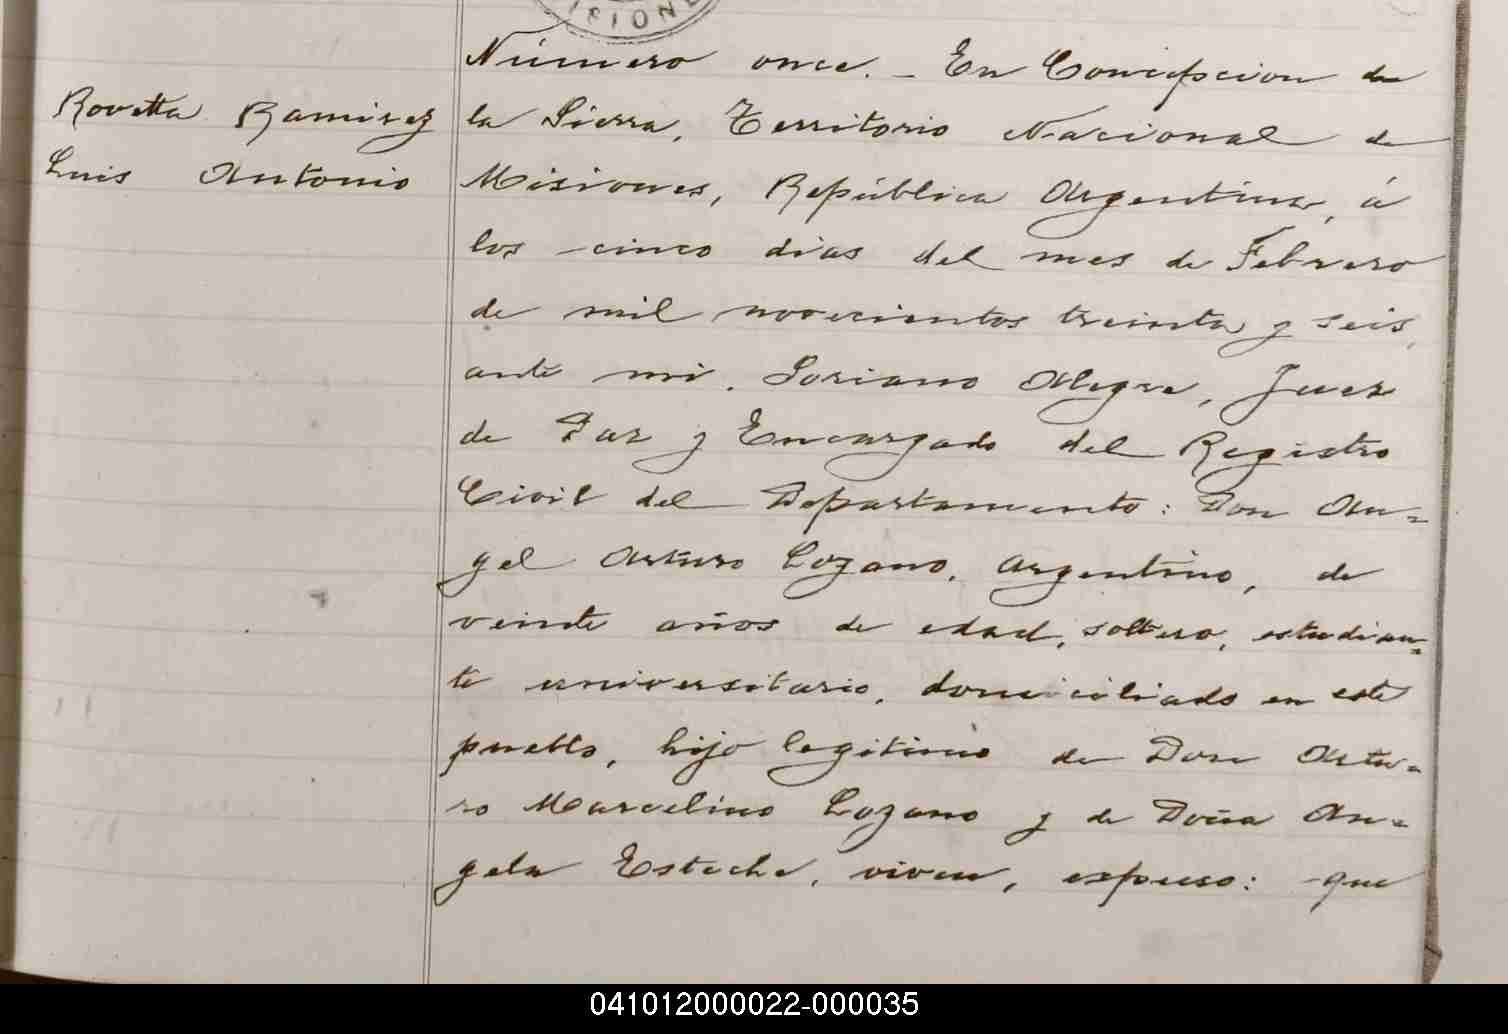 ISIONE
Número once. - En Concepscion de
Rovetta Ramirez
la Sierra, Territorio Nacional de
Luis Antonio
Misiones, República Argentina, á
los cinco dias del mes de Febrero
de mil novecientos treinta y seis,
ante mi. Soriano Alegre, Juez
de Paz y Encargado del Registro
Civil del Departamento: Don An=
gel Arturo Lozano, argentino, de
veinte años de edad, soltero, estudian=
te universitario, domiciliado en este
pueblo, hijo legitimo de Don Artu=
ro Marcelino Lozano y de Doña An=
gela Esteche, viven, expuso: que
041012000022-000035